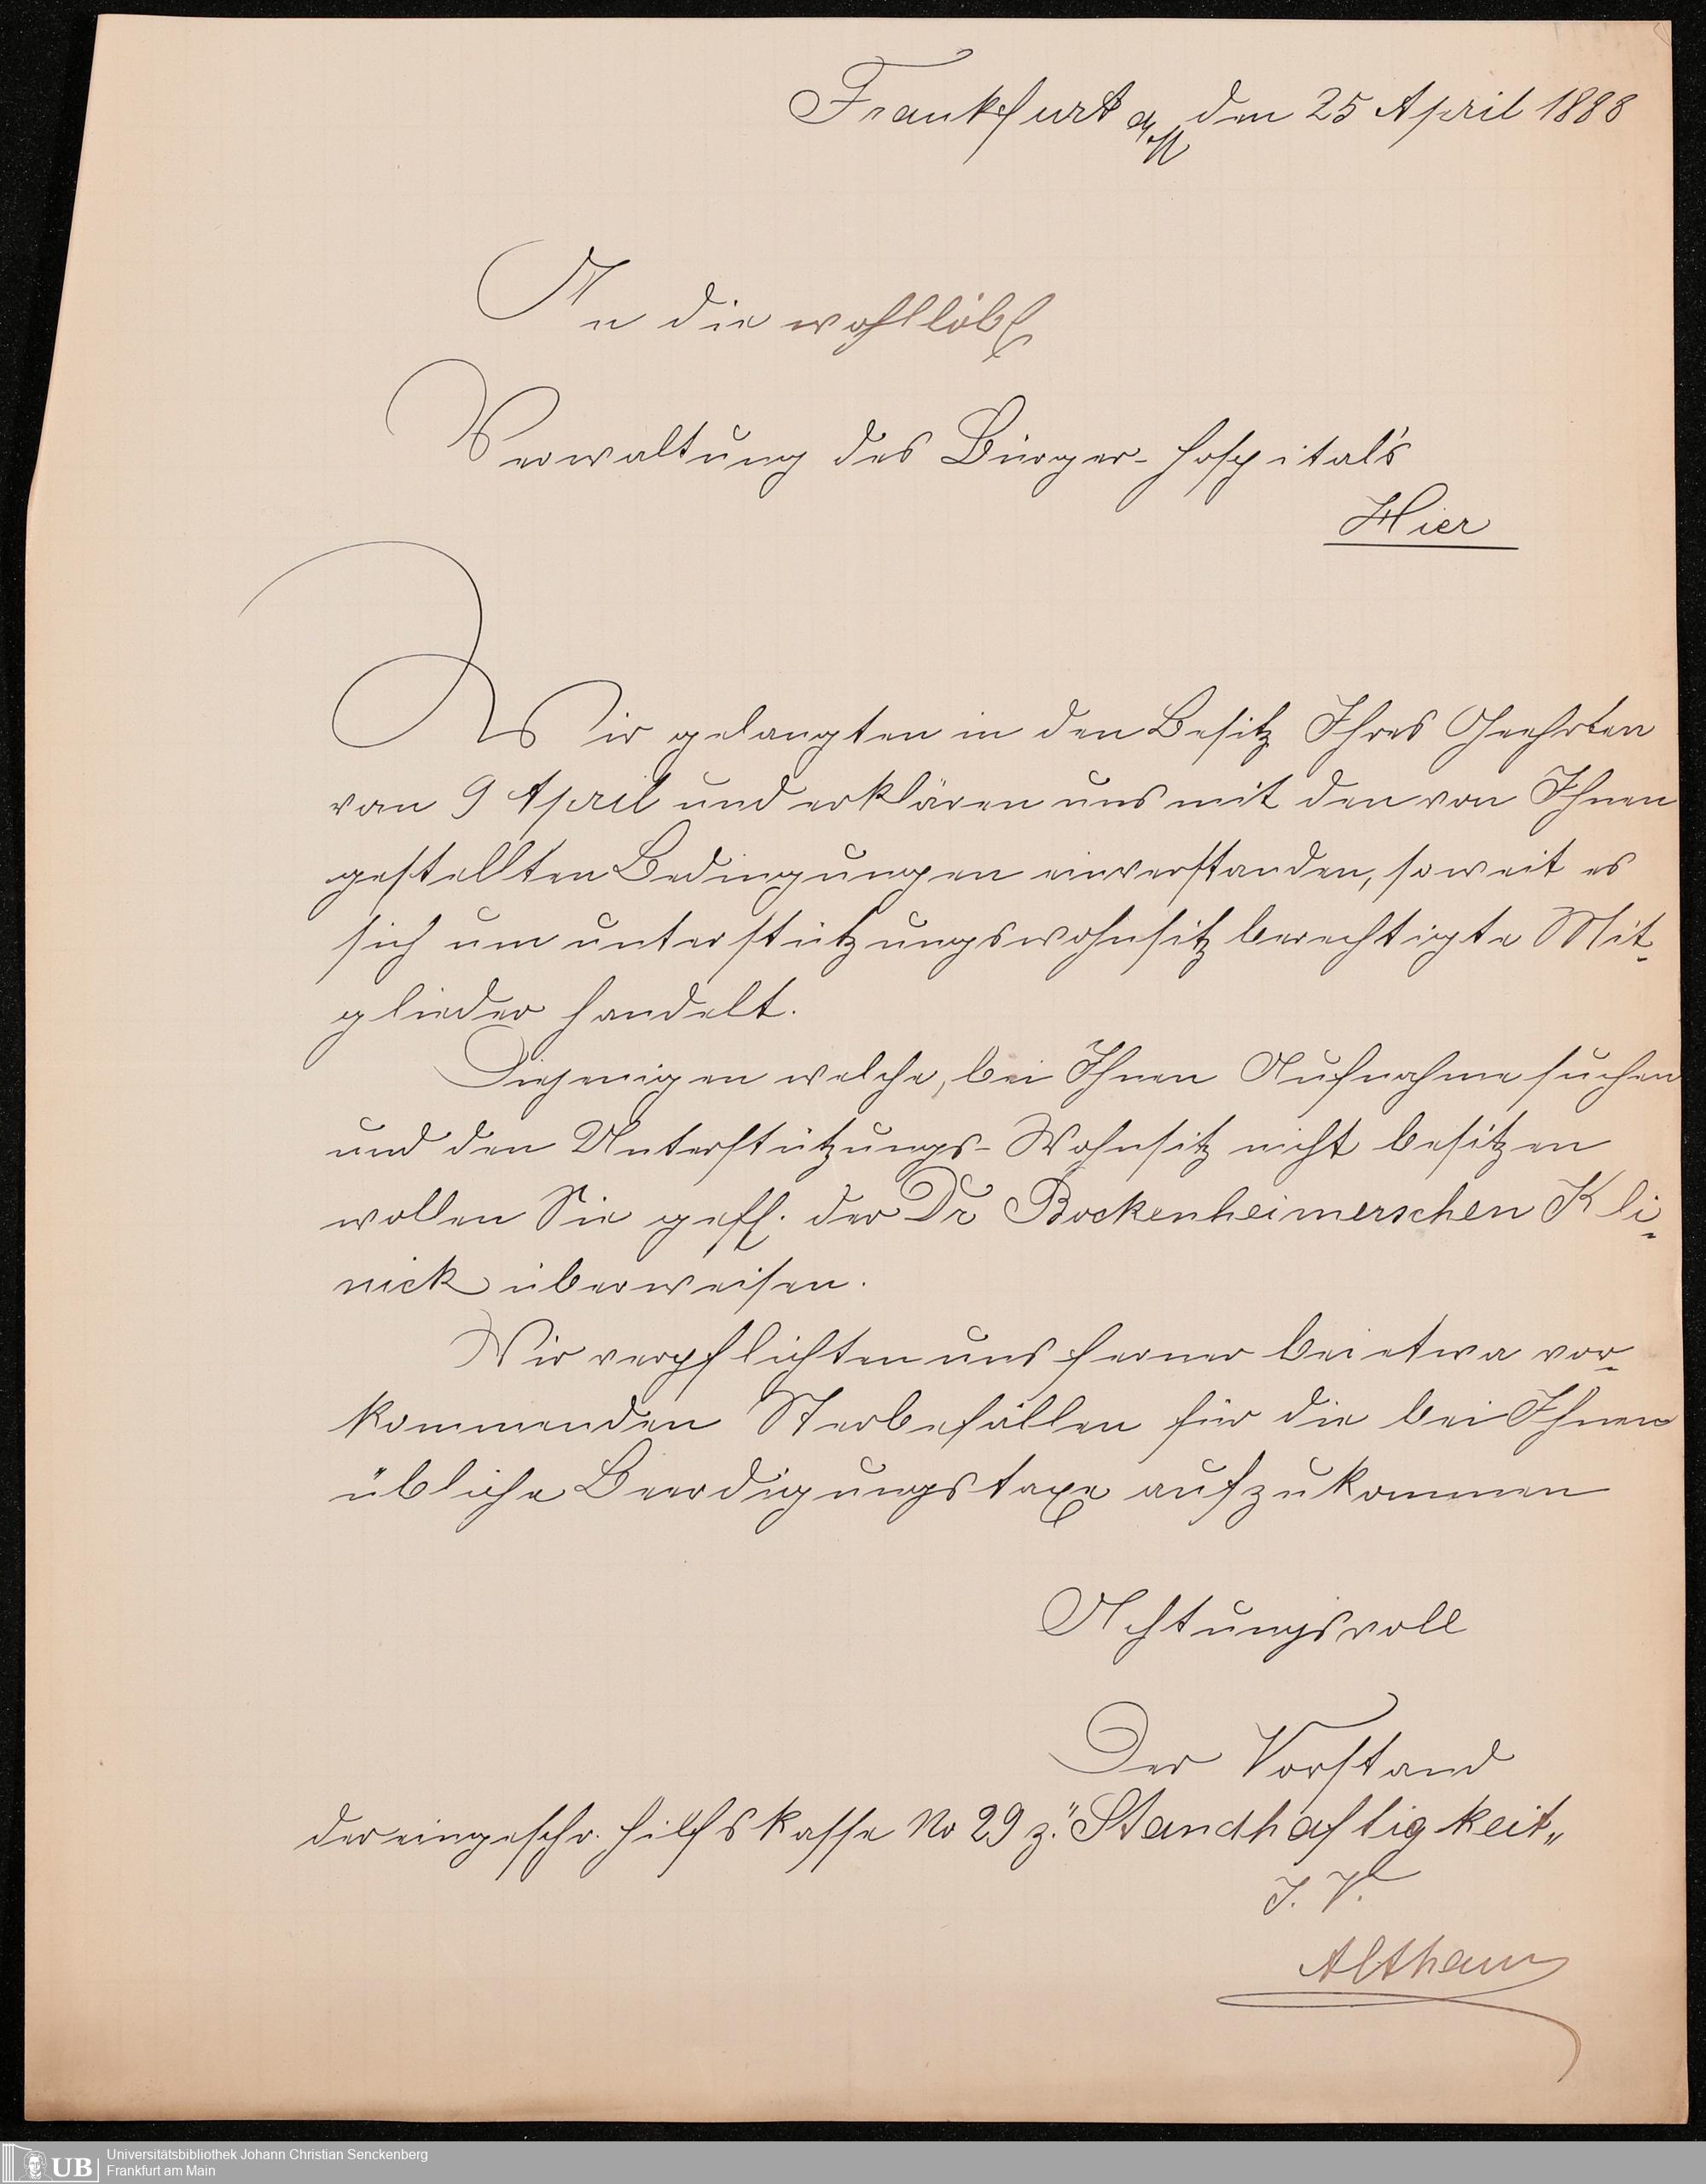 Frankfurt a/M den 25 April 1888
An die wohllöbl
Verwaltung des Bürger-Hospital's
Hier
Wir gelangten in den Besitz Ihres Geehrten
vom 9 April und erklären uns mit den von Ihnen
gestellten Bedingungen einverstanden, soweit es
sich um unterstützungswohnsitz berechtigte Mit-
glieder handelt.
Diejenigen welche, bei Ihnen Aufnahme suchen
und den Unterstützungs-Wohnsitz nicht besitzen
wollen Sie gefl. der Dr Bockenheimerschen Kli-
nick überweisen.
Wir verpflichten uns ferner bei etwa vor-
kommenden Sterbefällen für die bei Ihnen
übliche Beerdigungstaxe aufzukommen
Achtungsvoll
Der Vorstand
der eingeschr. Hilfskasse No 29 z. "Standhaftigkeit„
I. V.
UB
Universitätsbibliothek Johann Christian Senckenberg
Frankfurt am Main